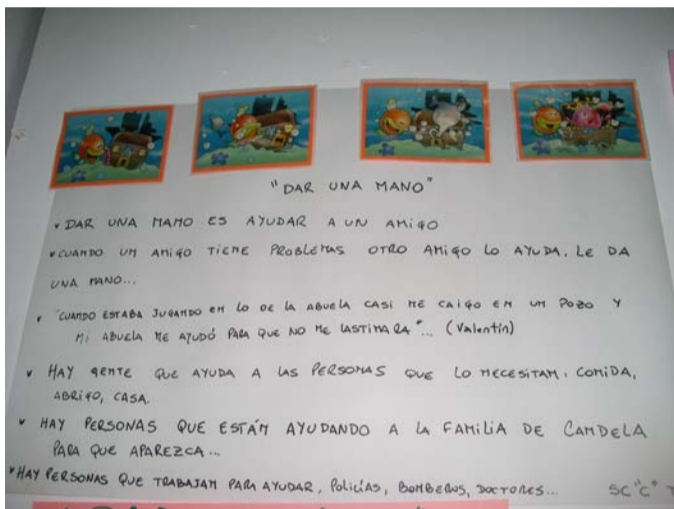 "DAR UNA MANO"
DAR UNA MANO ES AYUDAR A UN AMIGO
CUANDO UN AMIGO TIENE PROBLEMAS OTRO AMIGO LO AYUDA. LE DA
UNA MANO...
"CUANDO ESTABA JUGANDO EN LO DE LA ABUELA CASI ME CAIGO EN UN POZO Y
MI ABUELA ME AYUDÓ PARA QUE NO ME LASTIMARA"... (Valentín)
HAY GENTE QUE AYUDA A LAS PERSONAS QUE LO NECESITAN: COMIDA,
ABRIGO, CASA.
HAY PERSONAS QUE ESTÁN AYUDANDO A LA FAMILIA DE CANDELA
PARA QUE APAREZCA...
HAY PERSONAS QUE TRABAJAN PARA AYUDAR, POLICÍAS, BOMBEROS, DOCTORES... SC "C"